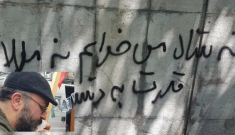 نه می خوایم نه ملا
قدرت به دست